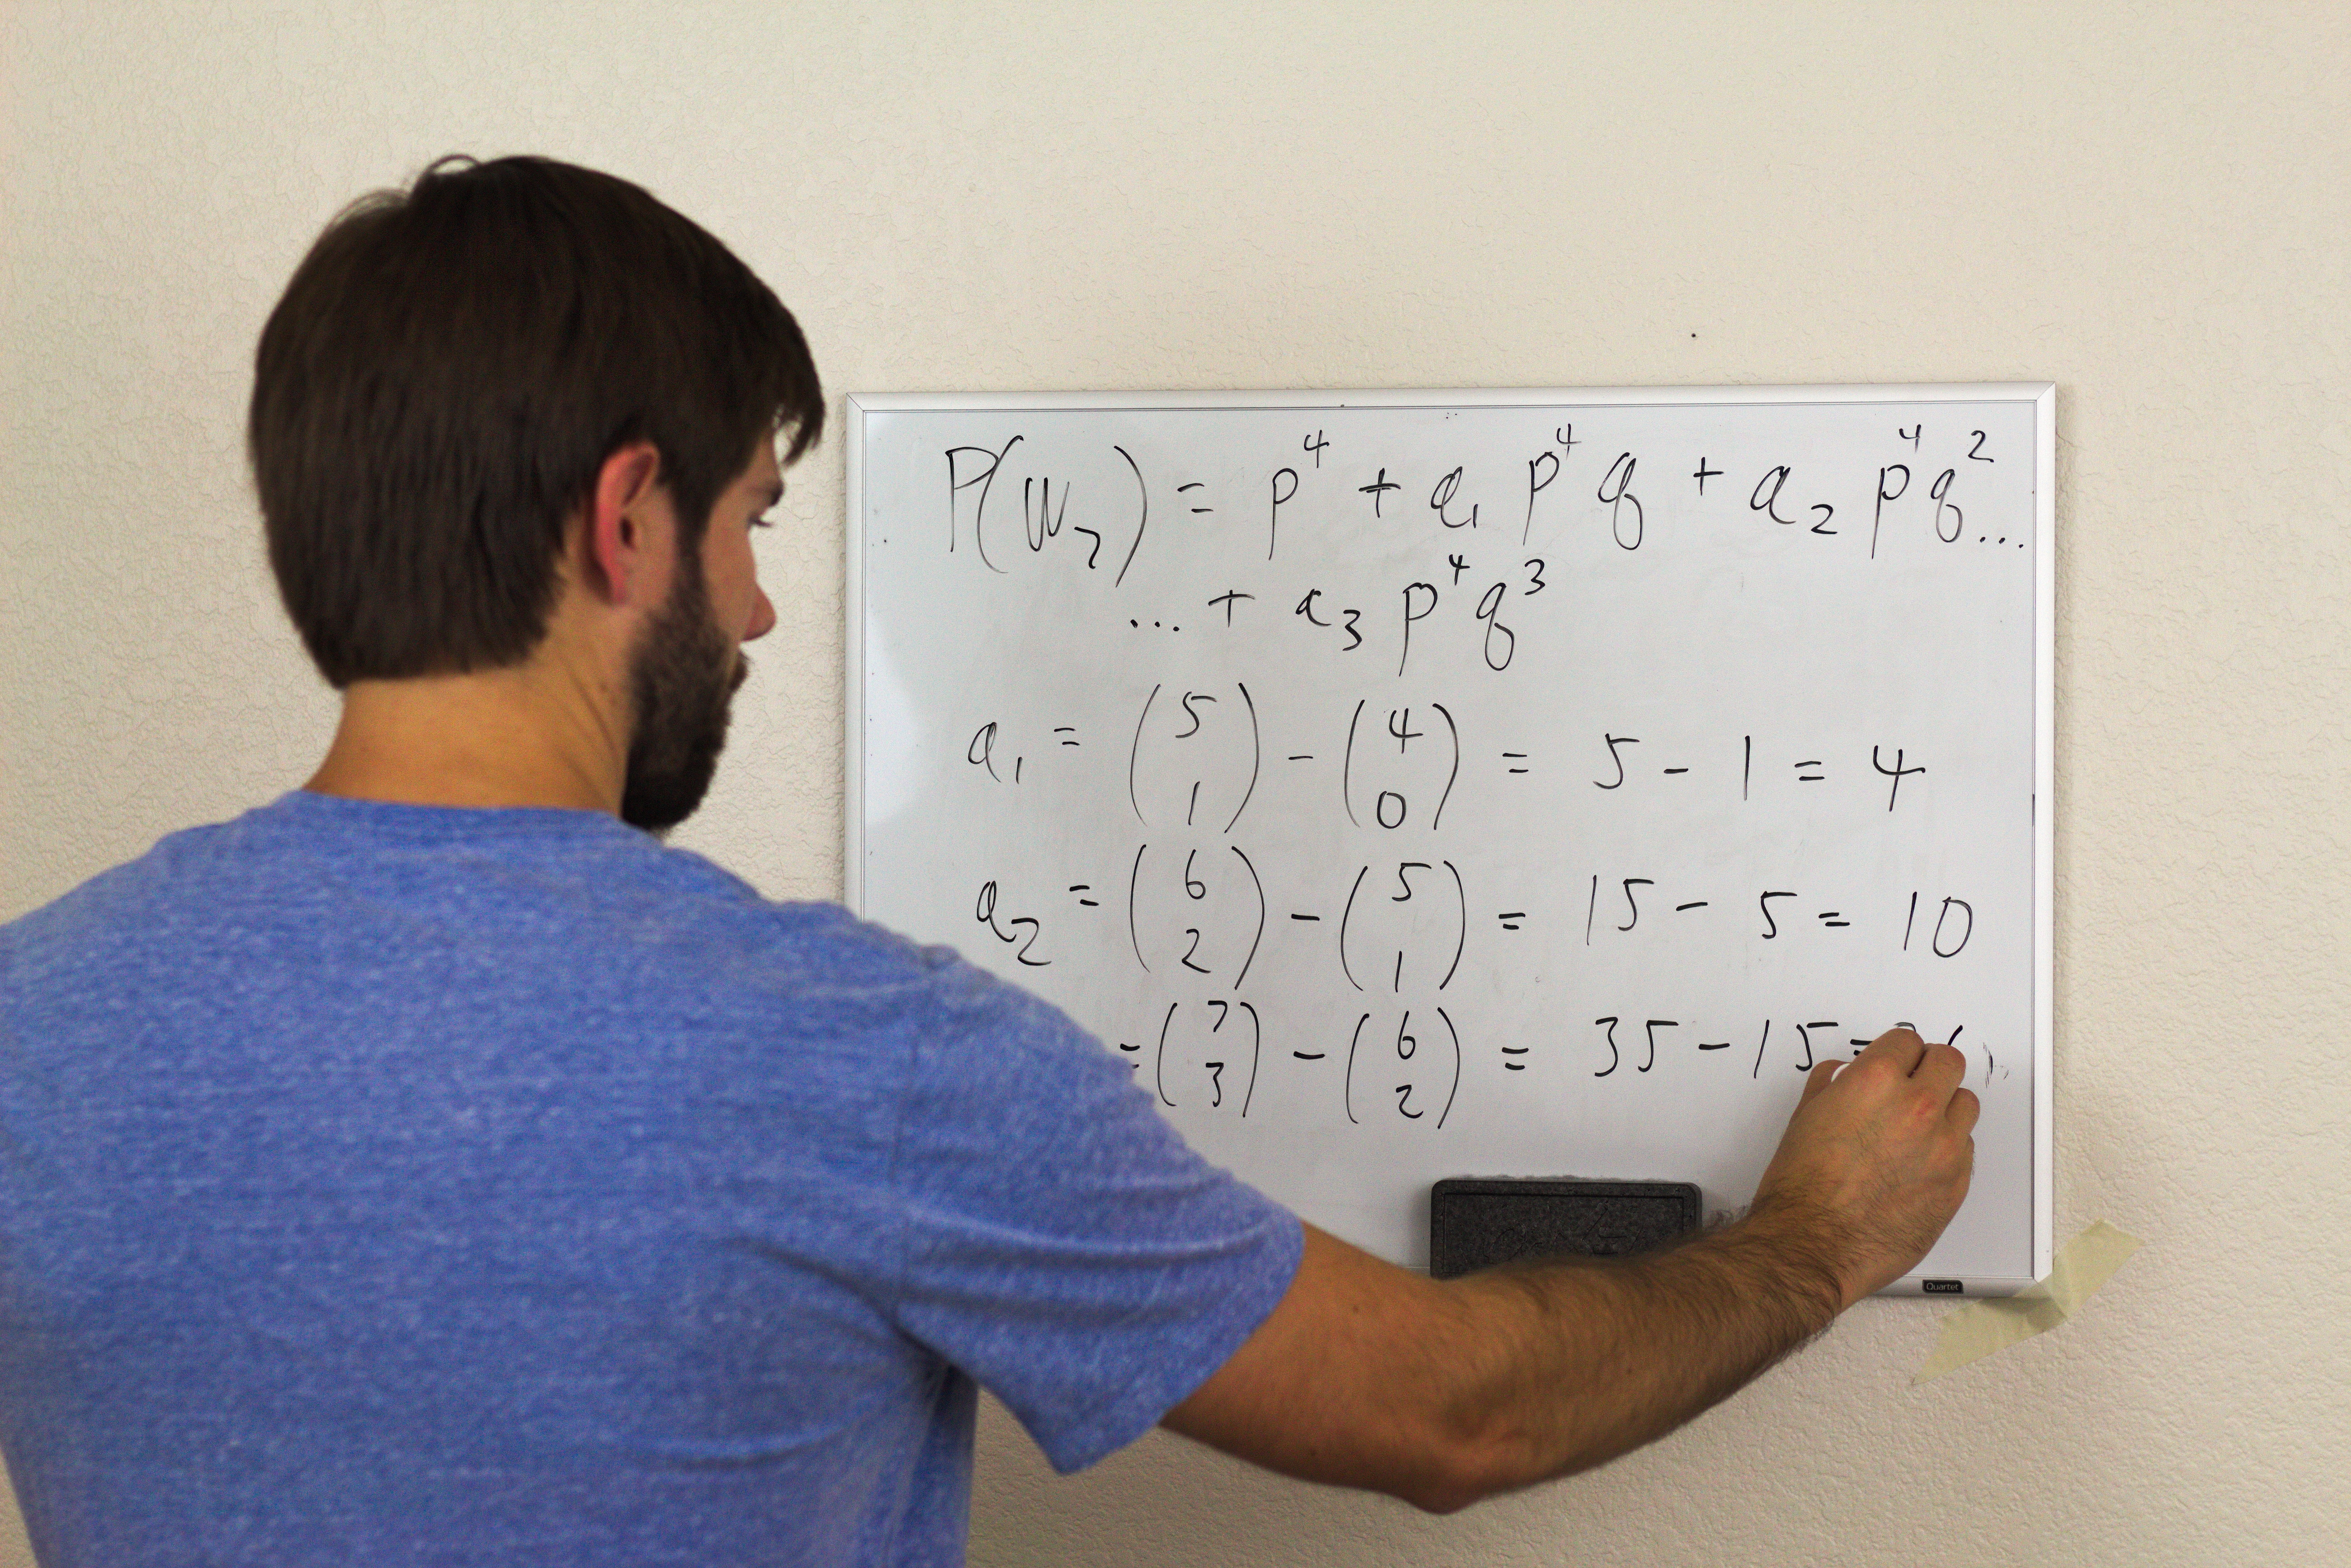 P(W₇) = p⁴ + a₁ p⁴ q + a₂ p⁴ q² ...
... + a₃ p⁴ q³
a₁ = (5 1) - (4 0) = 5 - 1 = 4
a₂ = (6 2) - (5 1) = 15 - 5 = 10
= (7 3) - (6 2) = 35 - 15 =
Quartet